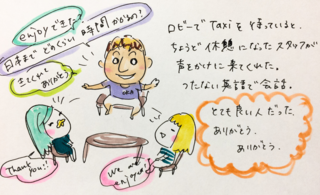 enjoyできた?
日本まで どのくらい 時間 かかるの?
きてくれて ありがとう
Thank you!!
We are enjoy!!
ロビーで Taxi を待っていると、
ちょうど休憩になったスタッフが
声をかけに来てくれた。
つたない英語で会話。
とても良い人だった。
ありがとう、
ありがとう。